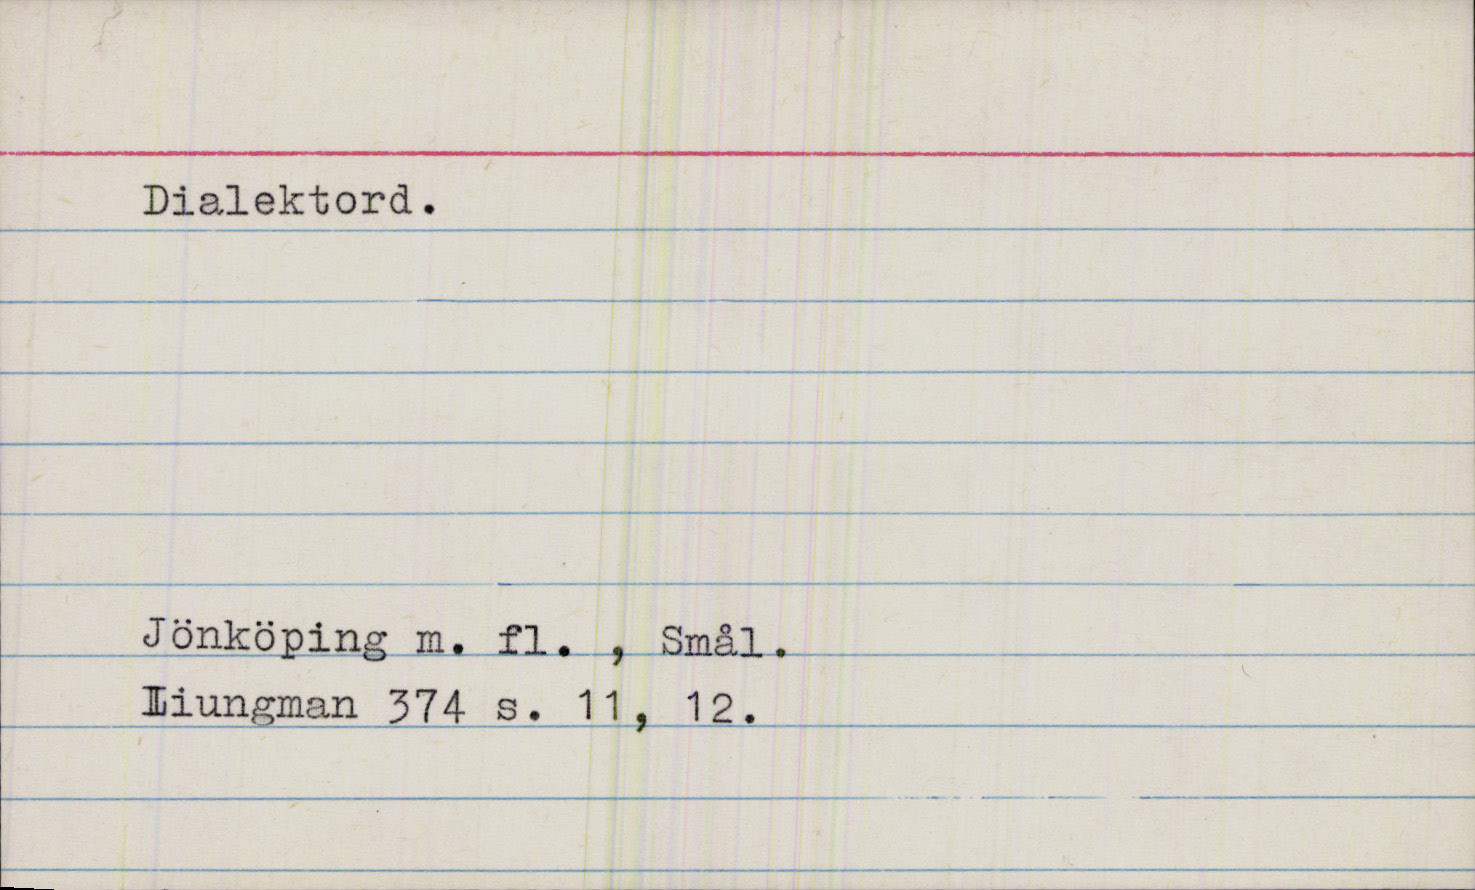 Dialektord.
Jönköping m. fl. , Smål.
Liungman 374 s. 11, 12.